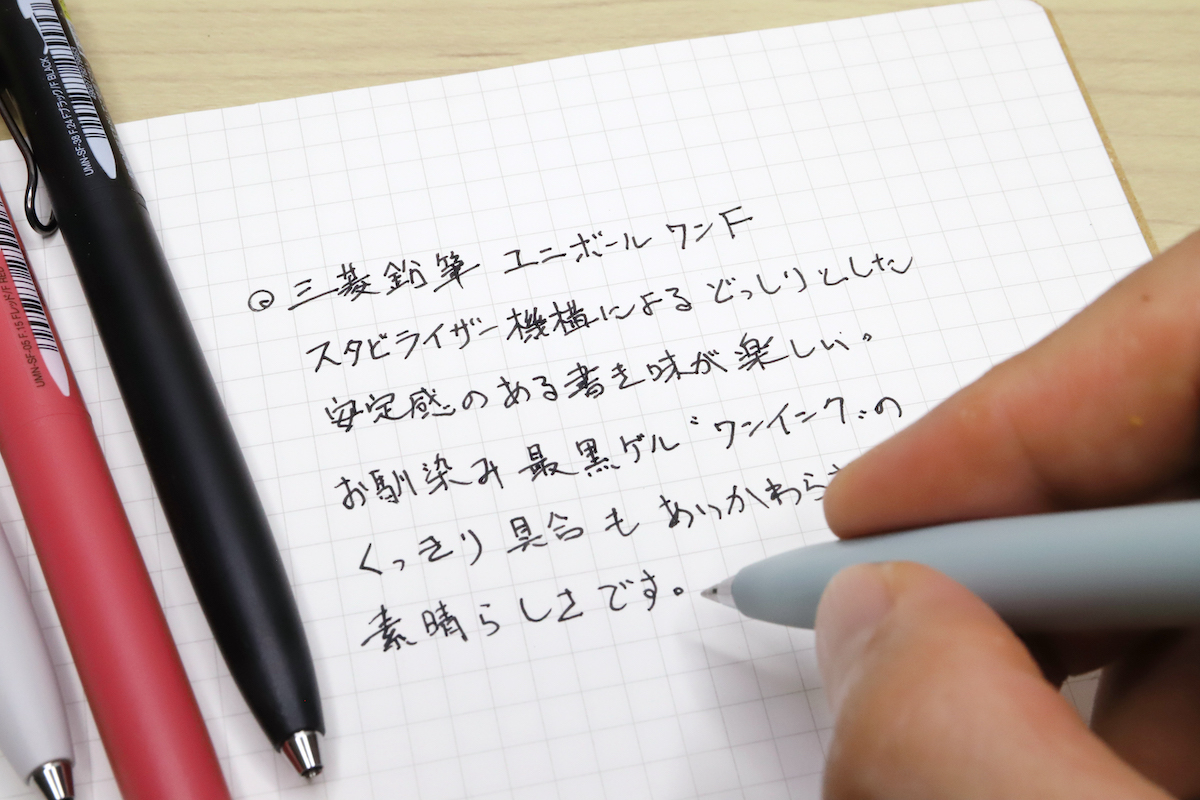 ◎三菱鉛筆 ユニボール ワン F
スタビライザー機構による どっしりとした
安定感のある書き味が楽しい。
お馴染み 最黒ゲル〝ワンインク〟の
くっきり具合も あいかわらず
素晴らしさです。
UMN-SF-38 F.24 FブラックF BLACK
UMN-SF-05 F.15 FレッドF RED